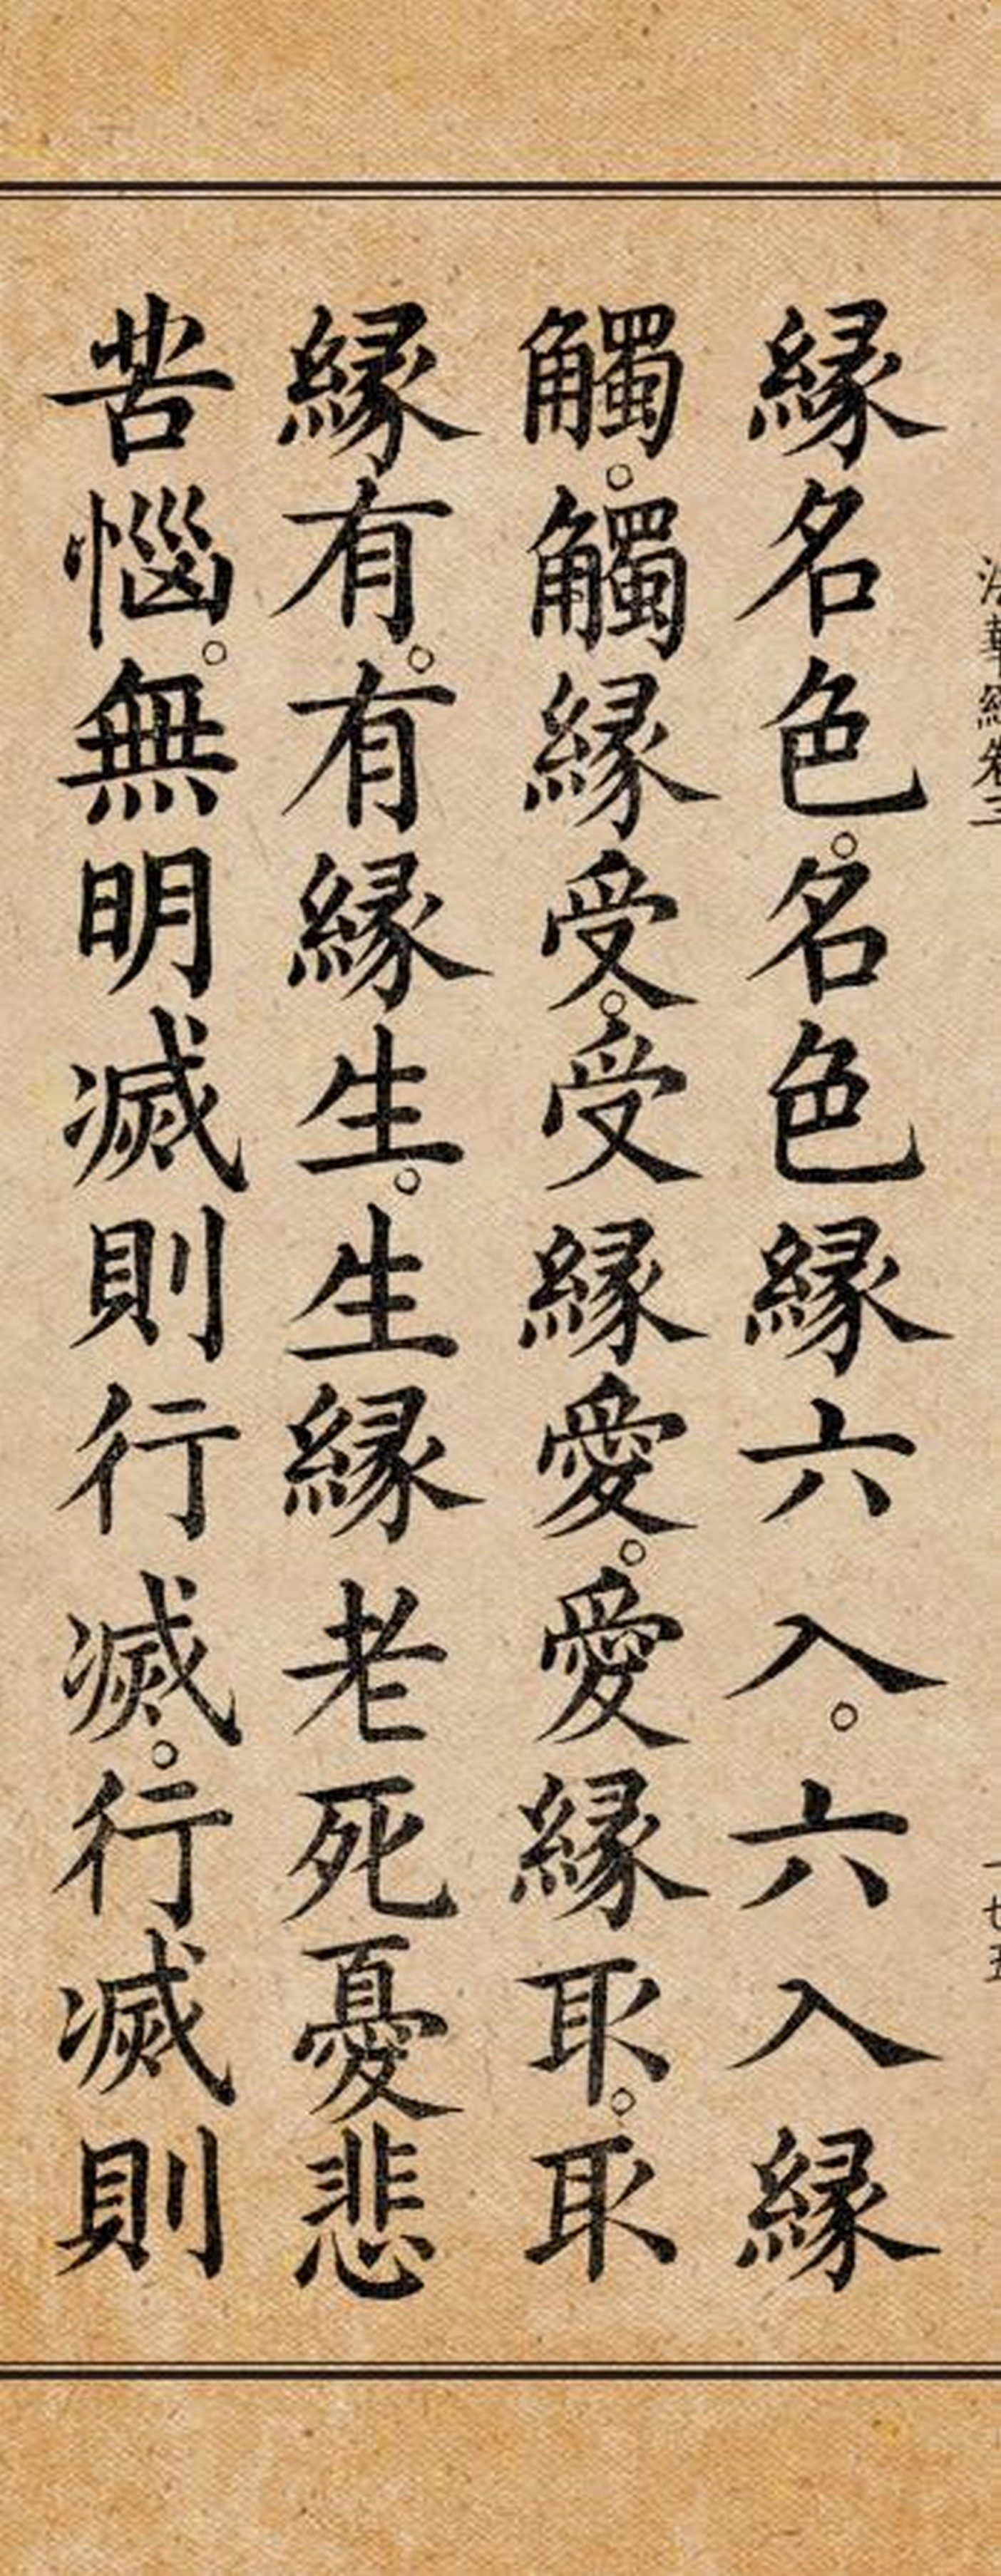 法華經卷三
縁名色。名色縁六入。六入縁
觸。觸縁受。受縁愛。愛縁取。取
縁有。有縁生。生縁老死憂悲
苦惱。無明滅則行滅。行滅則